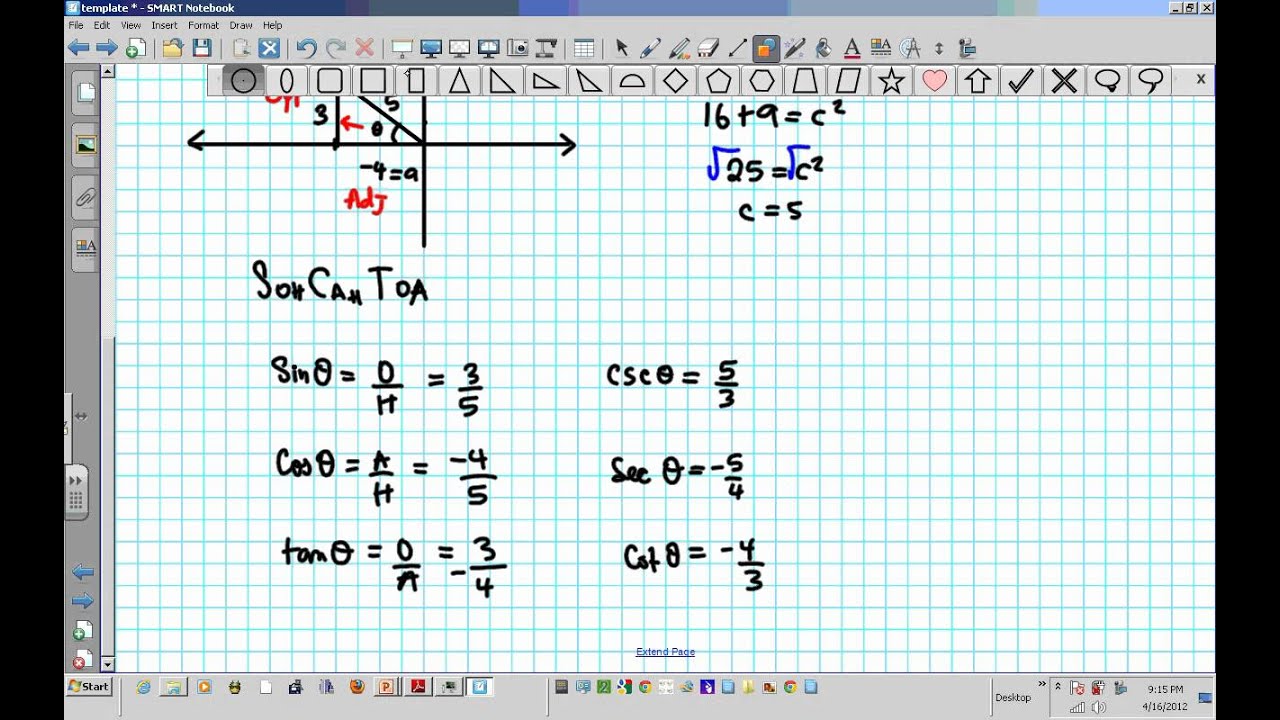 template * - SMART Notebook
File Edit View Insert Format Draw Help
3 5 θ
-4=a
Adj
16+9=c²
√25=√c²
c=5
SOHCAHTOA
Sinθ = O/H = 3/5
cscθ = 5/3
Cosθ = A/H = -4/5
Sec θ = -5/4
tanθ = O/A = 3/-4
Cotθ = -4/3
Extend Page
Start
Desktop
9:15 PM
4/16/2012